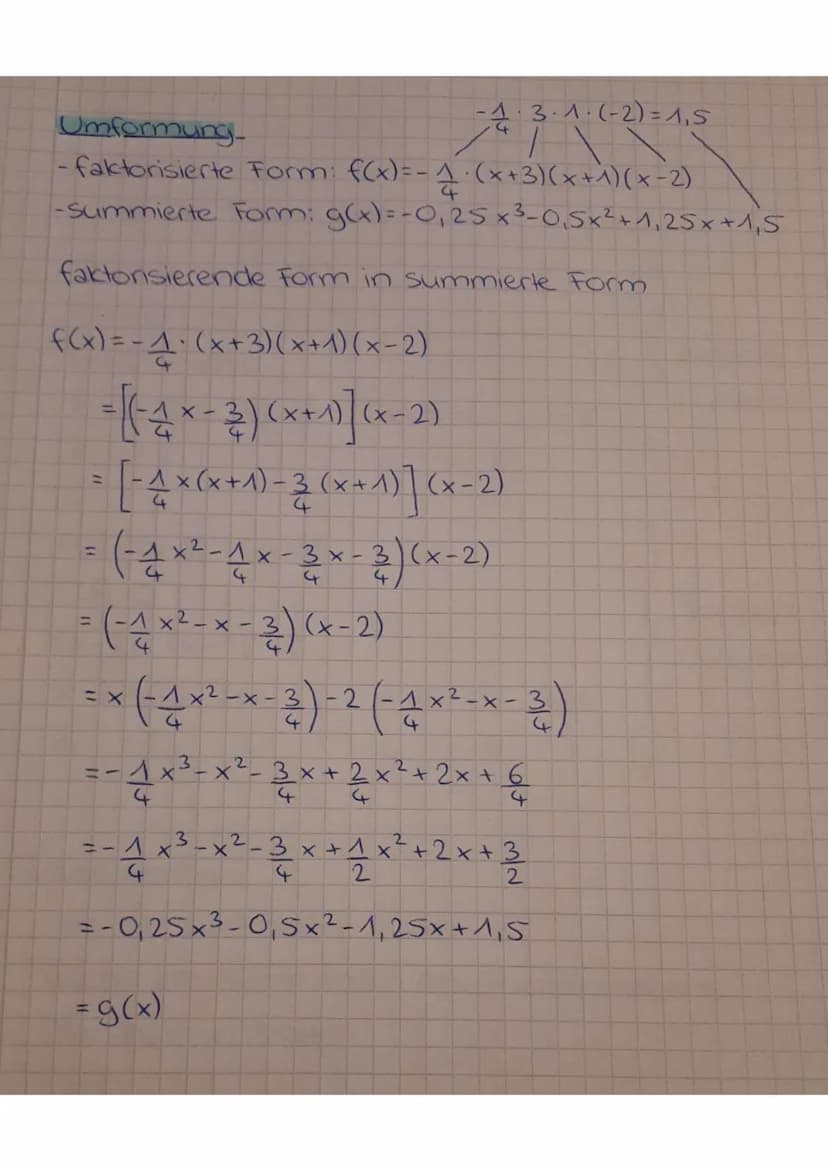 -1/4 · 3 · 1 · (-2) = 1,5
Umformung
- faktorisierte Form: f(x) = -1/4 · (x+3)(x+1)(x-2)
- summierte Form: g(x) = -0,25x³ - 0,5x² + 1,25x + 1,5
faktorisierende Form in summierte Form
f(x) = -1/4 · (x+3)(x+1)(x-2)
= [(-1/4 x - 3/4)(x+1)](x-2)
= [-1/4 x(x+1) - 3/4 (x+1)](x-2)
= (-1/4 x² - 1/4 x - 3/4 x - 3/4)(x-2)
= (-1/4 x² - x - 3/4)(x-2)
= x(-1/4 x² - x - 3/4) - 2(-1/4 x² - x - 3/4)
= -1/4 x³ - x² - 3/4 x + 2/4 x² + 2x + 6/4
= -1/4 x³ - x² - 3/4 x + 1/2 x² + 2x + 3/2
= -0,25x³ - 0,5x² - 1,25x + 1,5
= g(x)